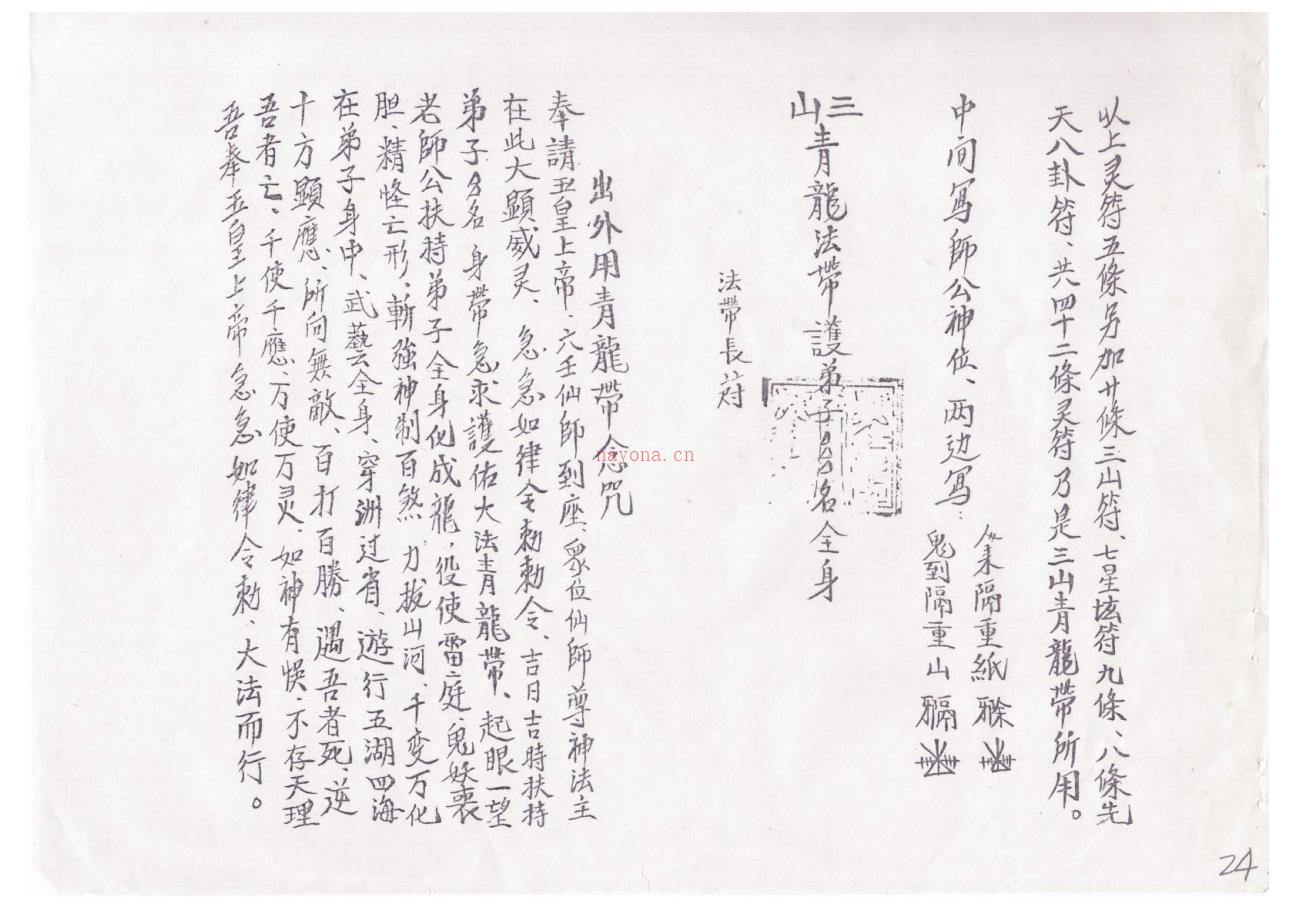 以上灵符五條另加廿條三山符、七星垓符九條、八條先
天八卦符、共四十二條灵符乃是三山青龍帶所用。
中间写師公神位、两边写:
隔重紙
鬼到隔重山
三山青龍法帶護弟子厶厶名全身
法帶長
出外用青龍帶念咒
奉請玉皇上帝、六壬仙師到座、眾位仙師尊神法主
在此大顯威灵、急急如律令勅勅令、吉日吉時扶持
弟子厶名身帶急求護佑大法青龍帶、起眼一望
老師公扶持弟子全身化成龍、役使雷庭、鬼妖喪
胆、精怪亡形、斬強神制百煞、力拔山河、千变万化
在弟子身中、武藝云全身、穿洲过省、遊行五湖四海
十方顯應、所向無敵、百打百勝、遇吾者死、逆
吾者亡、千使千應、万使万灵、如神有悞、不存天理
吾奉玉皇上帝急急如律令勅、大法而行。
nayona.cn
24